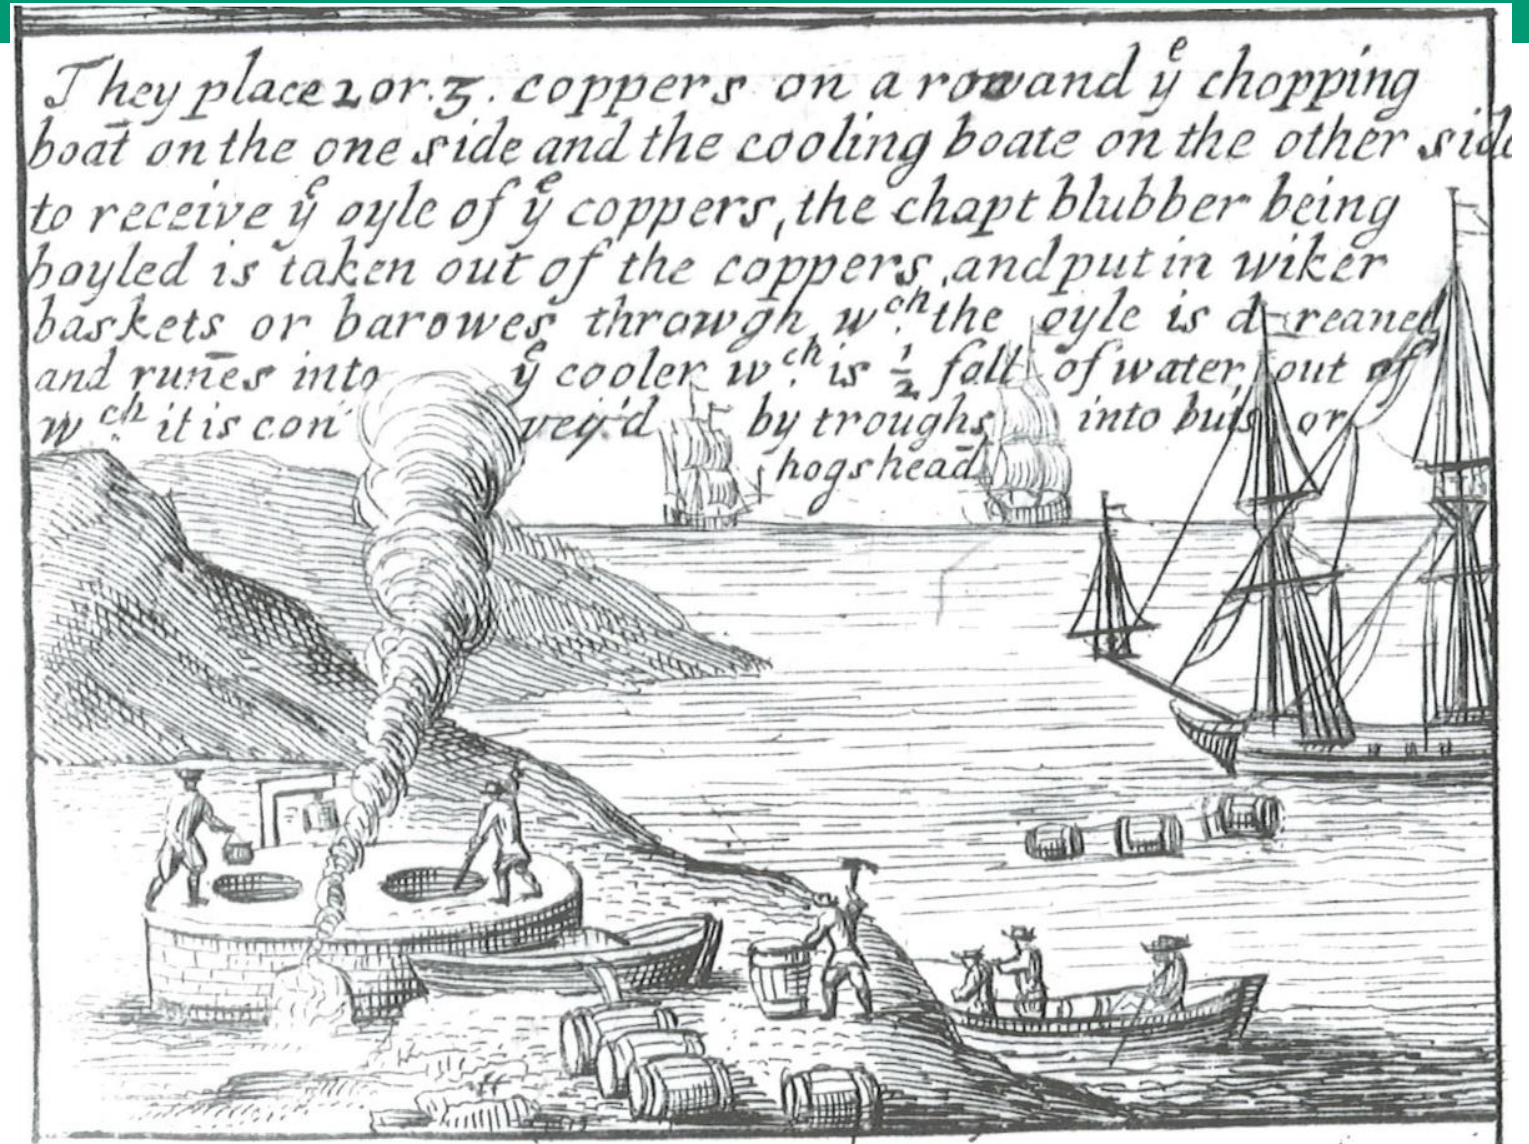 They place 2 or. 3. coppers on a row and yᵉ chopping
boat on the one side and the cooling boate on the other side
to receive yᵉ oyle of yᵉ coppers, the chapt blubber being
boyled is taken out of the coppers, and put in wiker
baskets or barowes throwgh wᶜʰ. the oyle is dreaned
and runēs into yᵉ cooler wᶜʰ. is ½ full of water, out of
wᶜʰ. it is convey'd by troughs into buts or
hogshead